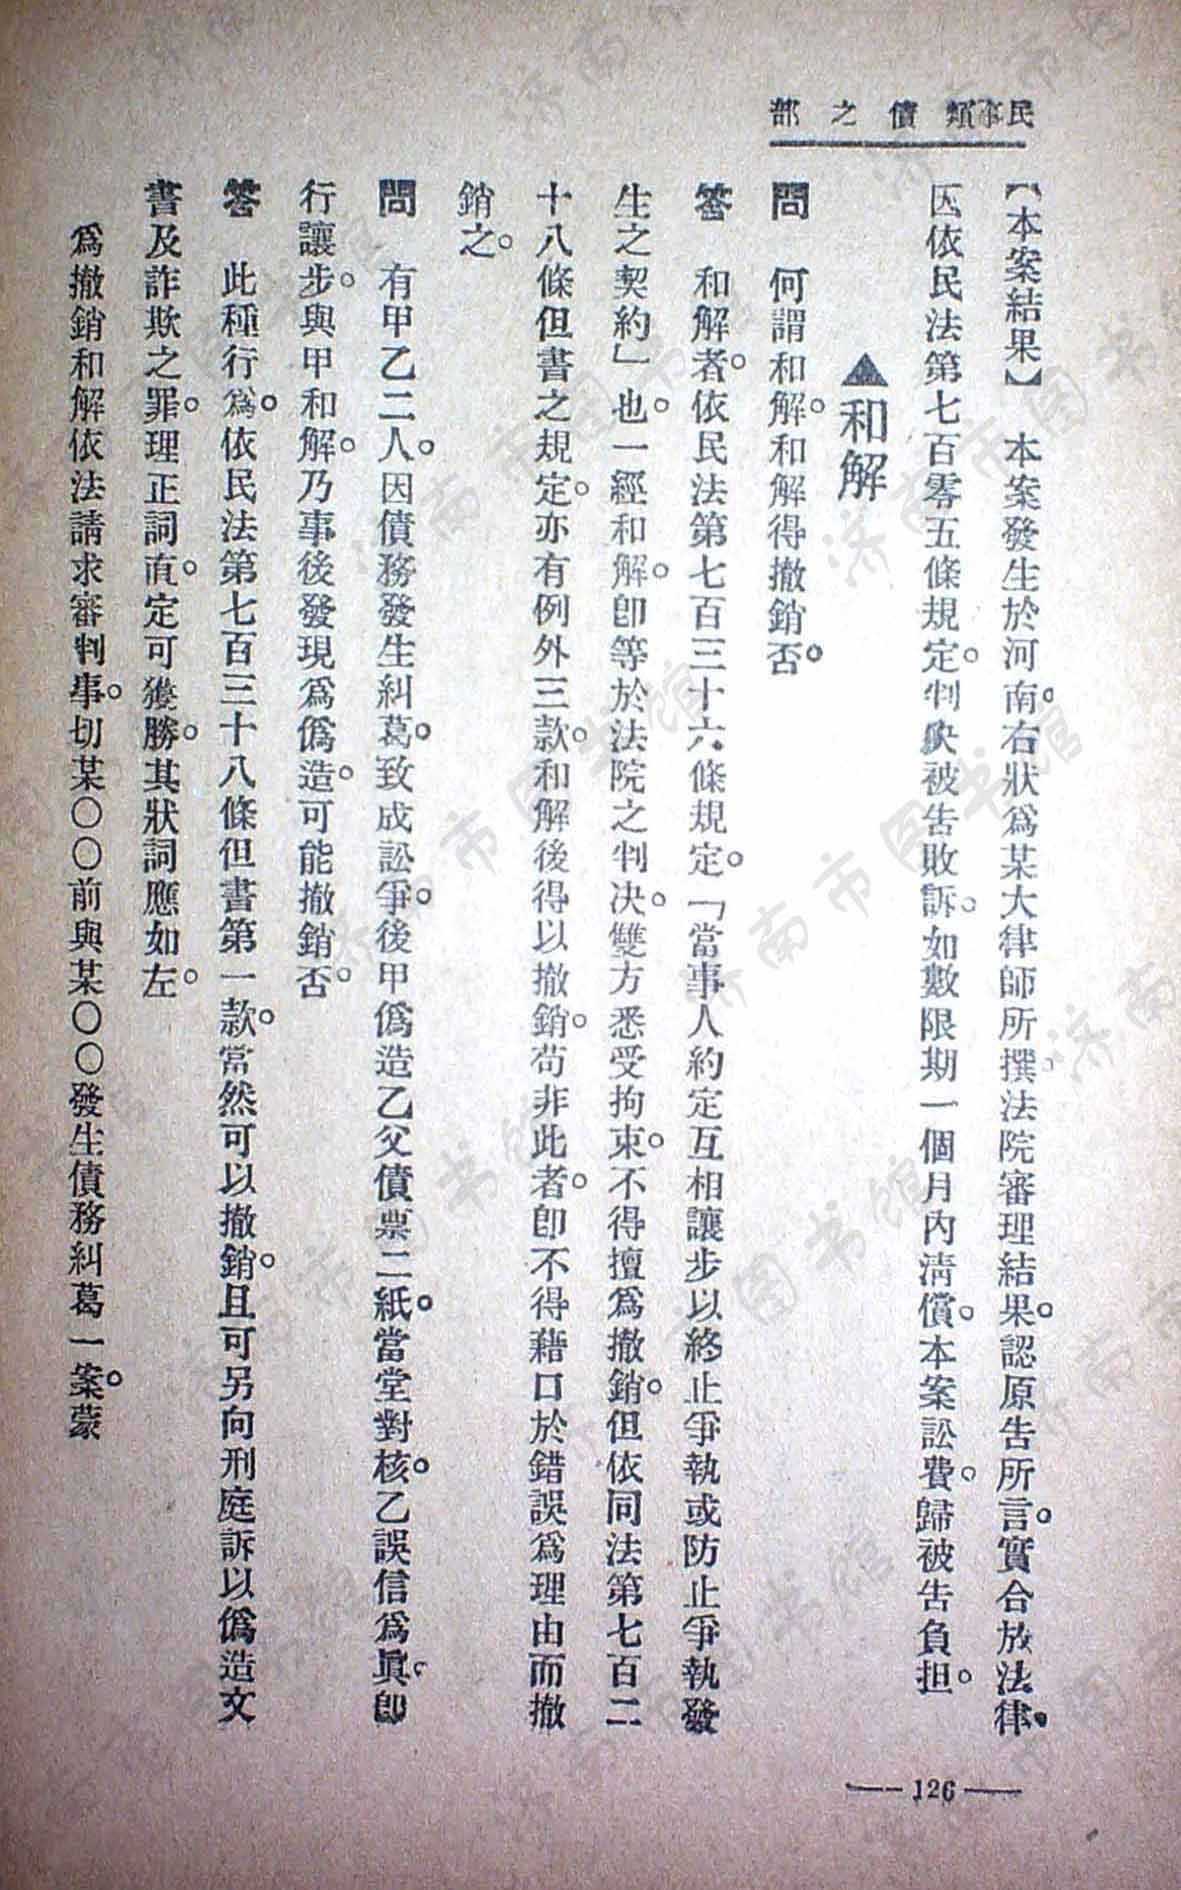 民事類債之部
【本案結果】　本案發生於河南。右狀爲某大律師所撰。法院審理結果。認原告所言。實合放法律。
因依民法第七百零五條規定。判決被告敗訴。如數限期一個月內淸償。本案訟費。歸被告負担。
▲和解
問　何謂和解。和解得撤銷否。
答　和解者。依民法第七百三十六條規定。「當事人約定互相讓步以終止爭執或防止爭執發
生之契約」也。一經和解。卽等於法院之判决。雙方悉受拘束。不得擅爲撤銷。但依同法第七百二
十八條但書之規定。亦有例外三款。和解後得以撤銷。苟非此者。卽不得藉口於錯誤爲理由而撤
銷之。
問　有甲乙二人。因債務發生糾葛。致成訟爭。後甲僞造乙父債票二紙。當堂對核。乙誤信爲眞。卽
行讓步。與甲和解。乃事後發現爲僞造。可能撤銷否。
答　此種行爲。依民法第七百三十八條但書第一款。當然可以撤銷。且可另向刑庭訴以僞造文
書及詐欺之罪。理正詞直。定可獲勝。其狀詞應如左。
爲撤銷和解依法請求審判事。切某〇〇前與某〇〇發生債務糾葛一案。蒙
—126—
济南市图书馆